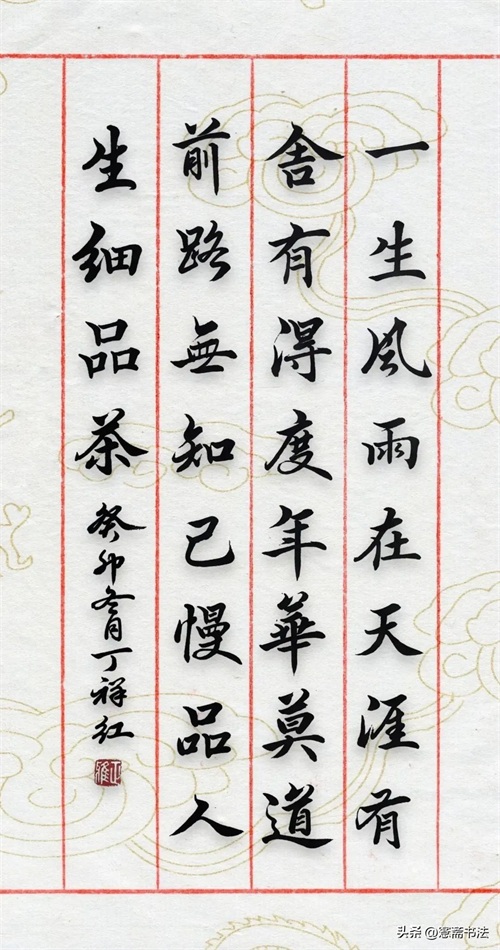 一生風雨在天涯有
舍有得度年華莫道
前路無知己慢品人
生细品茶
癸卯冬月丁祥红
头条 @憲斋书法